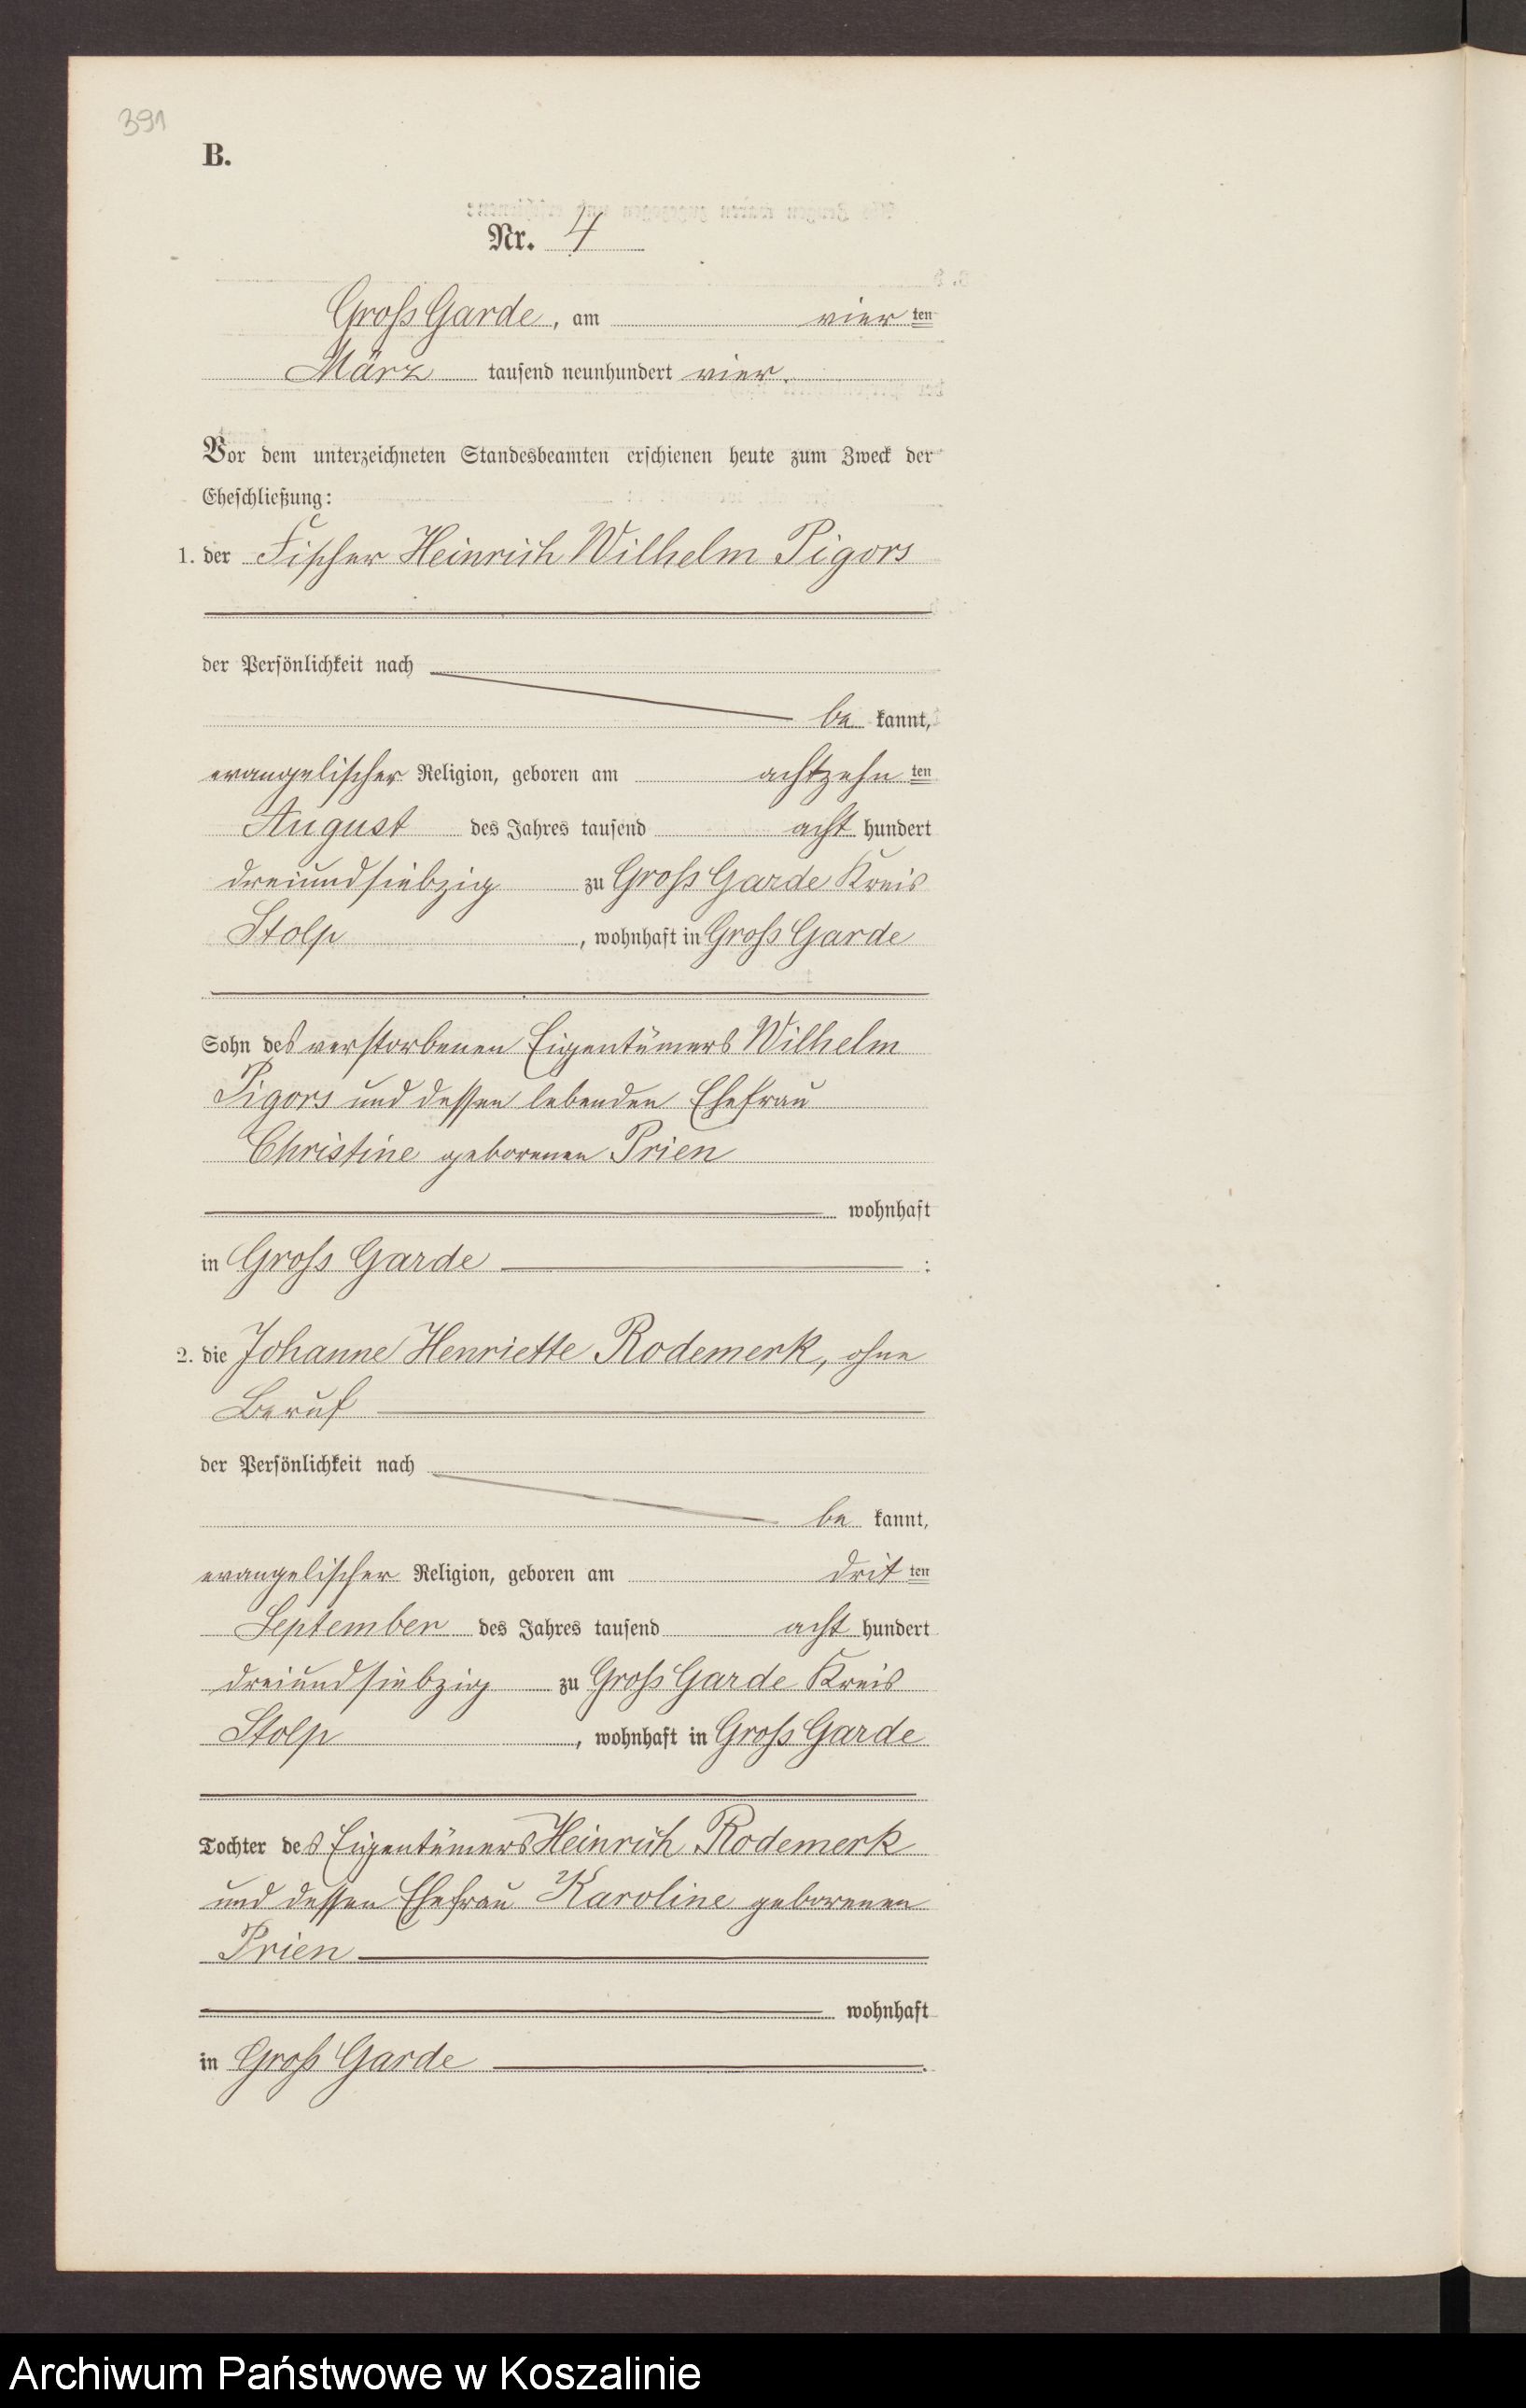 391
B.
Nr. 4
Groß Garde, am vier ten
März tausend neunhundert vier.
Vor dem unterzeichneten Standesbeamten erschienen heute zum Zweck der
Eheschließung:
1. der Fischer Heinrich Wilhelm Pigors
der Persönlichkeit nach
be kannt,
evangelischer Religion, geboren am achtzehn ten
August des Jahres tausend acht hundert
dreiundsiebzig zu Groß Garde Kreis
Stolp, wohnhaft in Groß Garde
Sohn des verstorbenen Eigentümers Wilhelm
Pigors und dessen lebenden Ehefrau
Christine geborenen Prien
wohnhaft
in Groß Garde :
2. die Johanne Henriette Rodemerk, ohne
Beruf
der Persönlichkeit nach
be kannt,
evangelischer Religion, geboren am drit ten
September des Jahres tausend acht hundert
dreiundsiebzig zu Groß Garde Kreis
Stolp, wohnhaft in Groß Garde
Tochter des Eigentümers Heinrich Rodemerk
und dessen Ehefrau Karoline geborenen
Prien
wohnhaft
in Groß Garde .
Archiwum Państwowe w Koszalinie